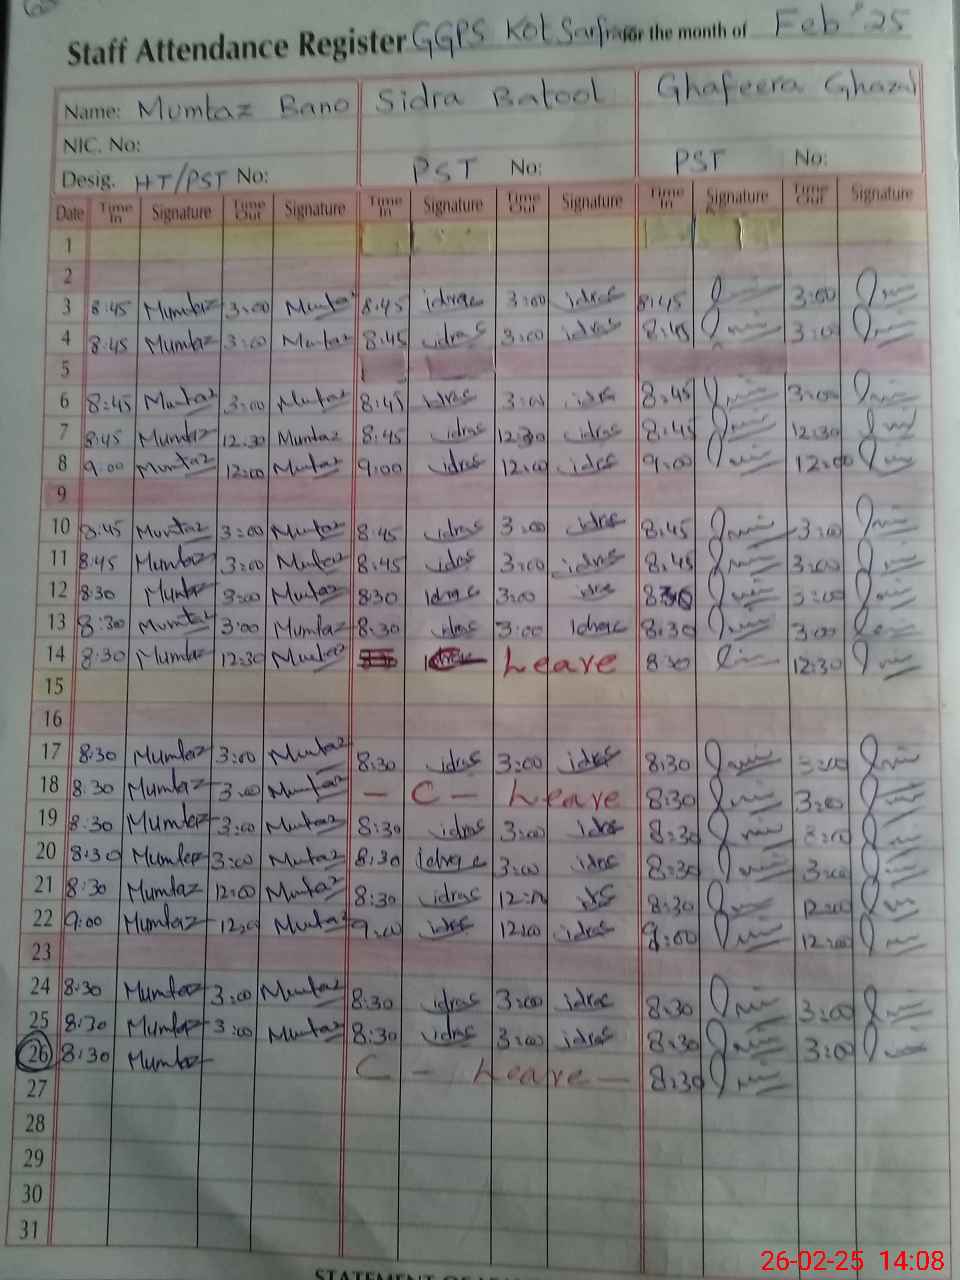 Staff Attendance Register GGPS Kot for the month of Feb' 25
Name: Mumtaz Bano Sidra Batool Ghafeera Ghazal
NIC. No:
Desig. HT/PST No: PST No: PST No:
Date Time In Signature Time Out Signature Time In Signature Time Out Signature Time In Signature Time Out Signature
1
2
3 8:45 Mumtaz 3:00 Mumtaz 8:45 idrac 3:00 idras 8:45 3:00
4 8:45 Mumtaz 3:00 Mumtaz 8:45 idras 3:00 idras 8:45 3:00
5
6 8:45 Mumtaz 3:00 Mumtaz 8:45 idras 3:00 idra 8:45 3:00
7 8:45 Mumtaz 12:30 Mumtaz 8:45 idras 12:30 idras 8:45 12:30
8 9:00 Mumtaz 12:00 Mumtaz 9:00 idras 12:00 idras 9:00 12:00
9
10 8:45 Mumtaz 3:00 Mumtaz 8:45 idras 3:00 idras 8:45 3:00
11 8:45 Mumtaz 3:00 Mumtaz 8:45 idras 3:00 idras 8:45 3:00
12 8:30 Mumtaz 3:00 Mumtaz 830 idras 3:00 8:30 3:00
13 8:30 Mumtaz 3:00 Mumtaz 8:30 idras 3:00 Idrac 8:30 3:00
14 8:30 Mumtaz 12:30 Mumtaz Leave 8:30 12:30
15
16
17 8:30 Mumtaz 3:00 Mumtaz 8:30 idras 3:00 idras 8:30 3:00
18 8:30 Mumtaz 3:00 Mumtaz - C - Leave 8:30 3:00
19 8:30 Mumtaz 3:00 Mumtaz 8:30 idras 3:00 idras 8:30 3:00
20 8:30 Mumtaz 3:00 Mumtaz 8:30 idrac 3:00 idras 8:30 3:00
21 8:30 Mumtaz 12:00 Mumtaz 8:30 idras 12:00 8:30 12:00
22 9:00 Mumtaz 12:00 Mumtaz 9:00 idras 12:00 idras 9:00 12:00
23
24 8:30 Mumtaz 3:00 Mumtaz 8:30 idras 3:00 idras 8:30 3:00
25 8:30 Mumtaz 3:00 Mumtaz 8:30 idras 3:00 idras 8:30 3:00
26 8:30 Mumtaz C - Leave - 8:30
27
28
29
30
31
26-02-25 14:08